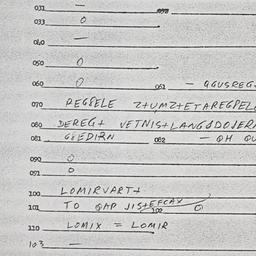 031 —
033 0
040 —
050 0
060 0 061 — GGUSREG
070 REGSELE Z+UMZ+ETAREGPEL
080 DEREG+ VETNIS+LANGDDOSER
081 GREDIRN 082 — QH QU
090 0
091 0
100 LOMIRVART+
101 TO QAP JIS+EFCAX 0
110 LOMIX = LOMIR
103 —